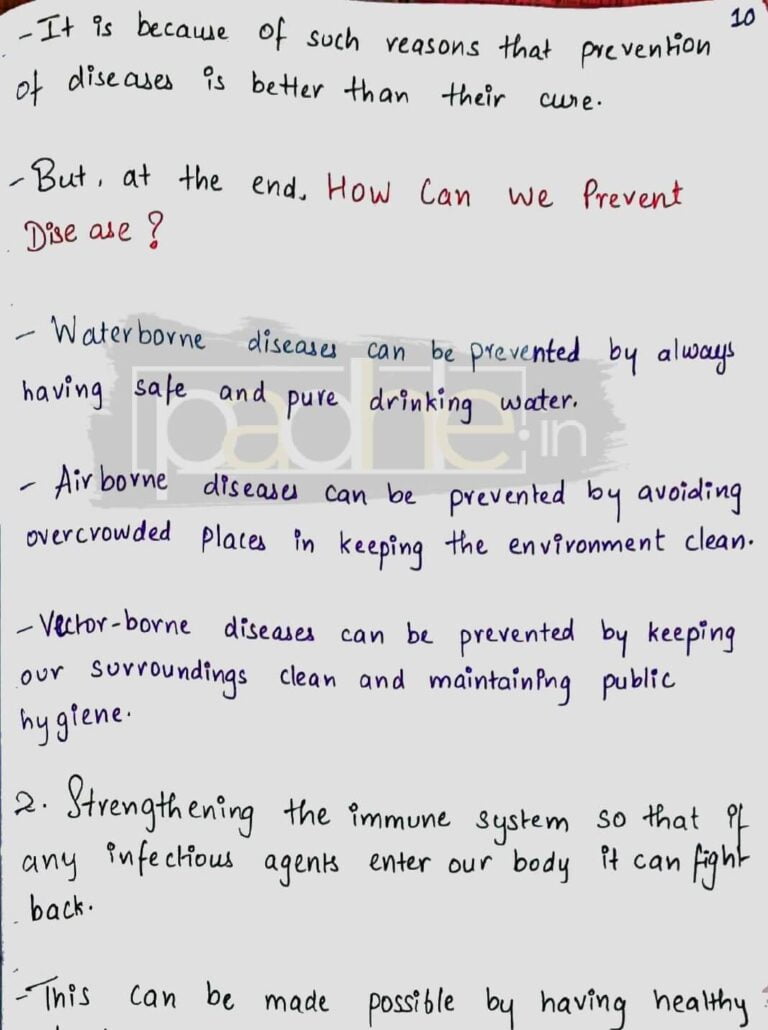 10
- It is because of such reasons that prevention
of diseases is better than their cure.
- But, at the end, How Can we Prevent
Disease?
- Waterborne diseases can be prevented by always
having safe and pure drinking water.
padhe.in
- Airborne diseases can be prevented by avoiding
overcrowded places in keeping the environment clean.
- Vector-borne diseases can be prevented by keeping
our surroundings clean and maintaining public
hygiene.
2. Strengthening the immune system so that if
any infectious agents enter our body it can fight
back.
- This can be made possible by having healthy